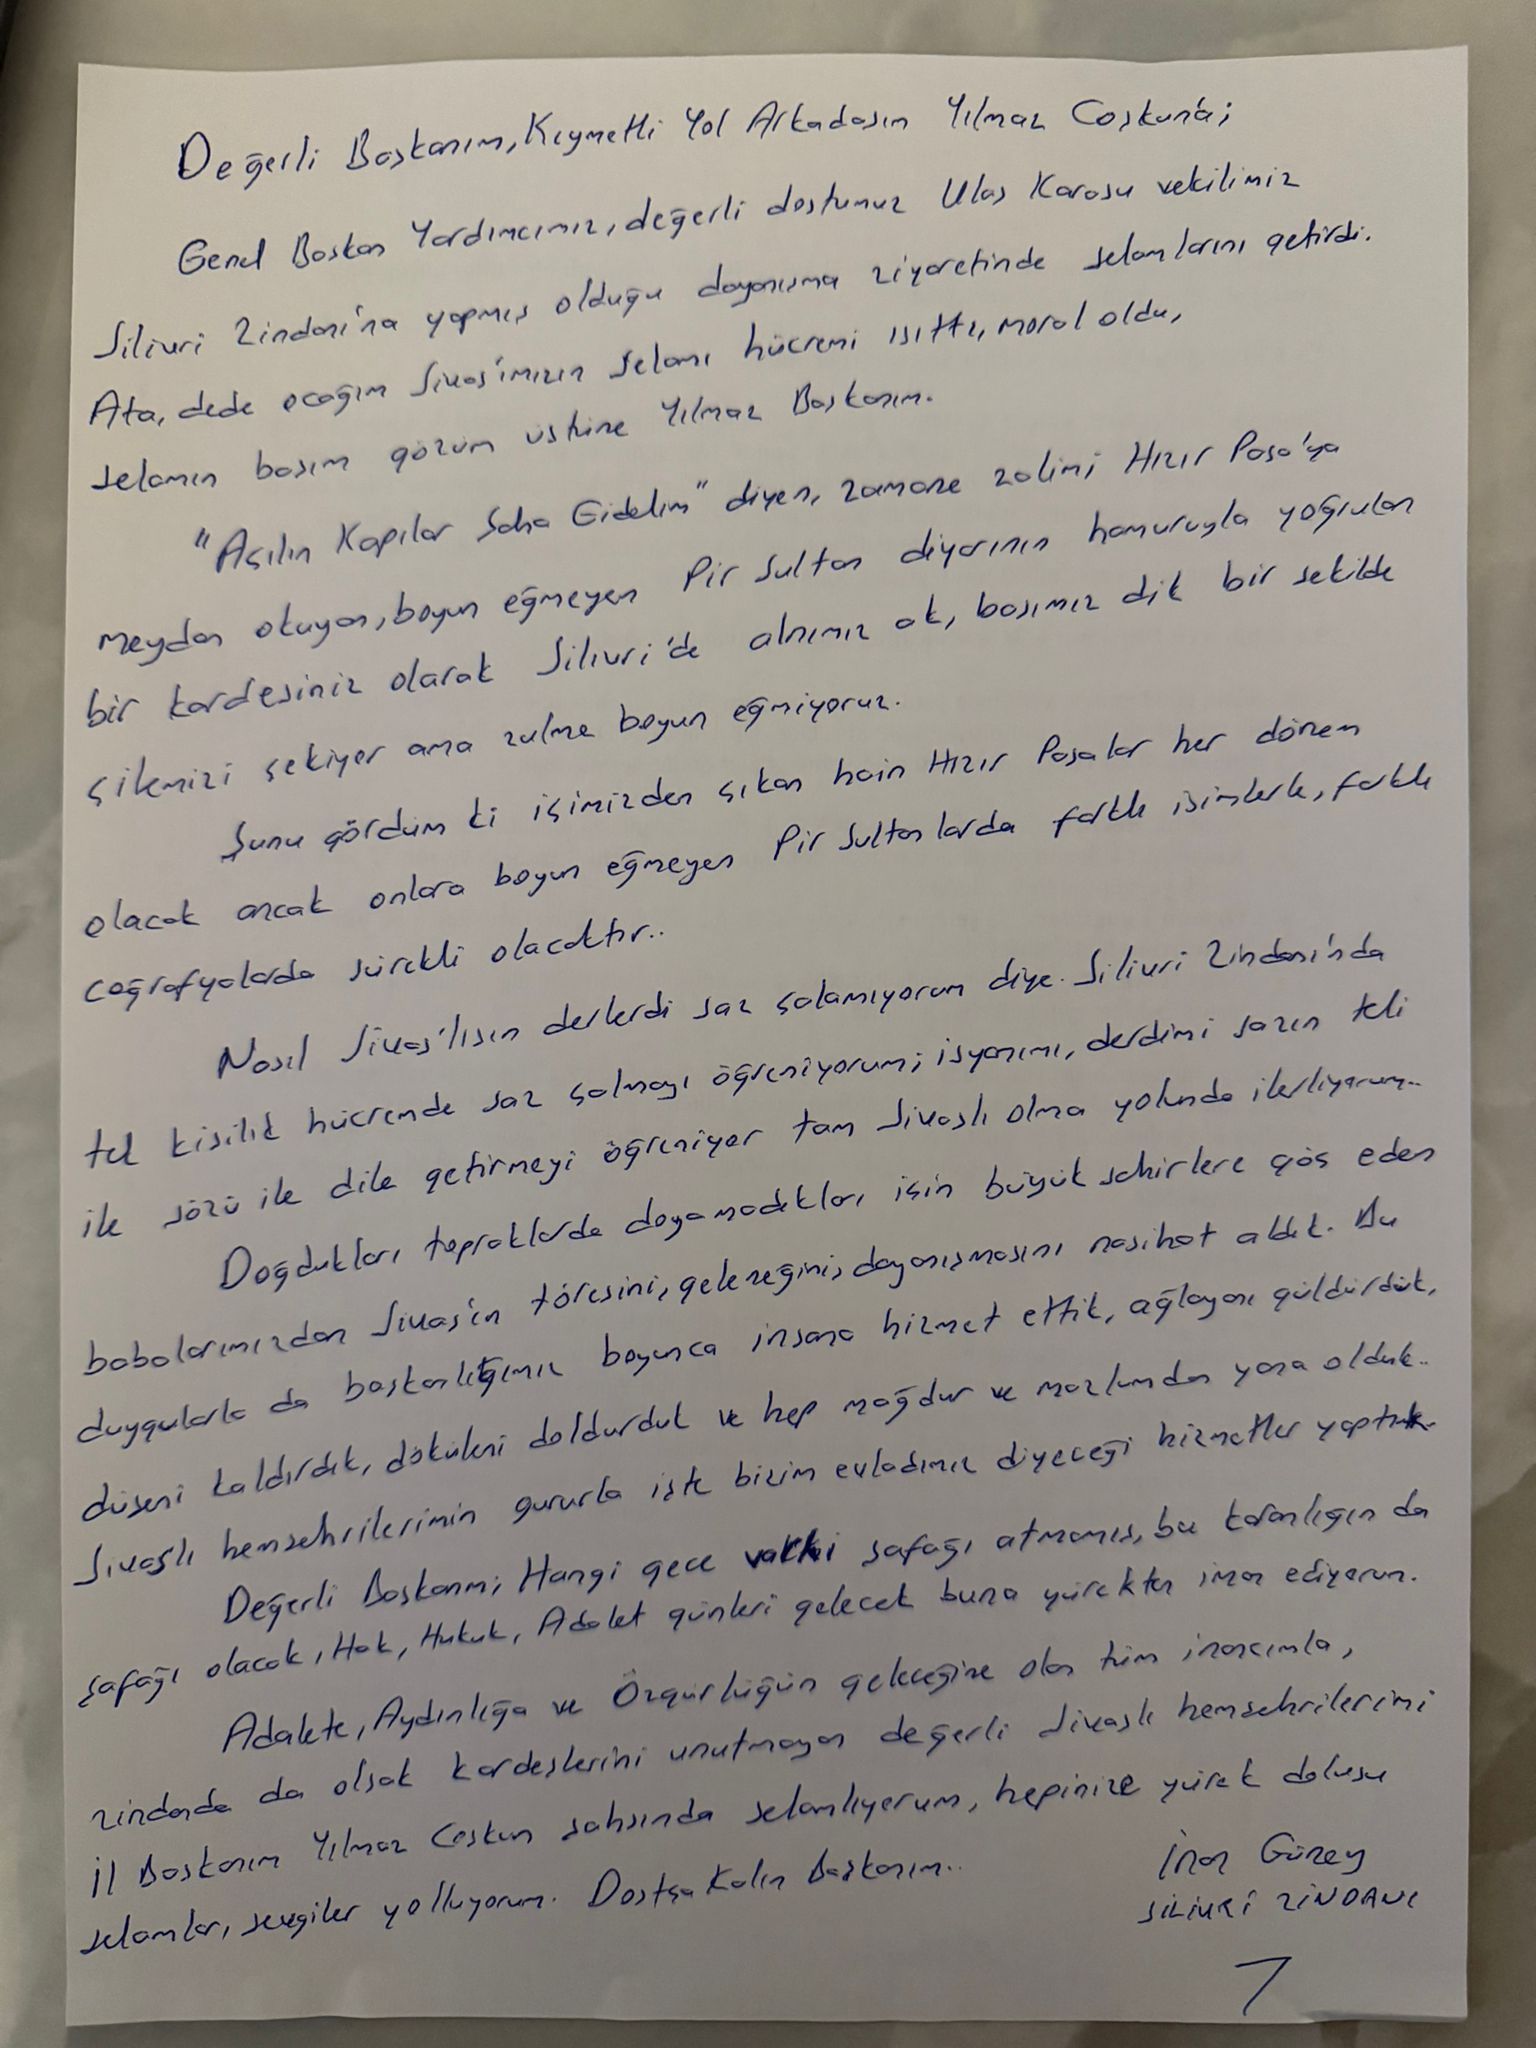 Değerli Başkanım, Kıymetli Yol Arkadaşım Yılmaz Coşkun'a;
Genel Başkan Yardımcımız, değerli dostumuz Ulaş Karasu vekilimiz
Silivri Zindanı'na yapmış olduğu dayanışma ziyaretinde selamlarını getirdi.
Ata, dede ocağım Sivas'ımızın selamı hücremi ısıttı, moral oldu,
selamın başım gözüm üstüne Yılmaz Başkanım.
"Açılın Kapılar Şaha Gidelim" diyen, zamane zalimi Hızır Paşa'ya
meydan okuyan, boyun eğmeyen Pir Sultan diyarının hamuruyla yoğrulan
bir kardeşiniz olarak Silivri'de alnımız ak, başımız dik bir şekilde
çilemizi çekiyor ama zulme boyun eğmiyoruz.
Şunu gördüm ki içimizden çıkan hain Hızır Paşalar her dönem
olacak ancak onlara boyun eğmeyen Pir Sultanlarda farklı isimlerle, farklı
coğrafyalarda sürekli olacaktır..
Nasıl Sivas'lısın derlerdi saz çalamıyorum diye. Silivri Zindanı'nda
tek kişilik hücremde saz çalmayı öğreniyorum; isyanımı, derdimi sazın teli
ile sözü ile dile getirmeyi öğreniyor tam Sivaslı olma yolunda ilerliyorum..
Doğdukları topraklarda doyamadıkları için büyük şehirlere göç eden
babalarımızdan Sivas'ın töresini, geleneğini, dayanışmasını nasihat aldık. Bu
duygularla da başkanlığımız boyunca insana hizmet ettik, ağlayanı güldürdük,
düşeni kaldırdık, döküleni doldurduk ve hep mağdur ve mazlumdan yana olduk..
Sivaslı hemşehrilerimin gururla işte bizim evladımız diyeceği hizmetler yaptık.
Değerli Başkanım; Hangi gece vakti şafağı atmamış, bu karanlığın da
şafağı olacak, Hak, Hukuk, Adalet günleri gelecek buna yürekten iman ediyorum.
Adalete, Aydınlığa ve Özgürlüğün geleceğine olan tüm inancımla,
zindanda da olsak kardeşlerini unutmayan değerli Sivaslı hemşehrilerimi
İl Başkanım Yılmaz Coşkun şahsında selamlıyorum, hepinize yürek dolusu
selamlar, sevgiler yolluyorum. Dostça Kalın Başkanım..
İnan Güney
SİLİVRİ ZİNDANI